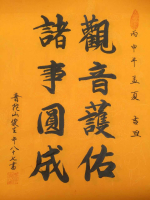 丙申年孟夏 吉旦
觀音護佑
諸事圓成
普陀山
年八十七書